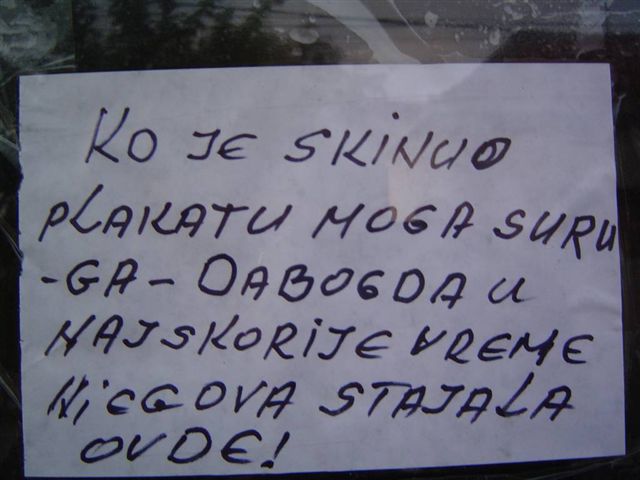 KO JE SKINUO
PLAKATU MOGA SURU
-GA- DABOGDA U
NAJSKORIJE VREME
NIEGOVA STAJALA
OVDE!